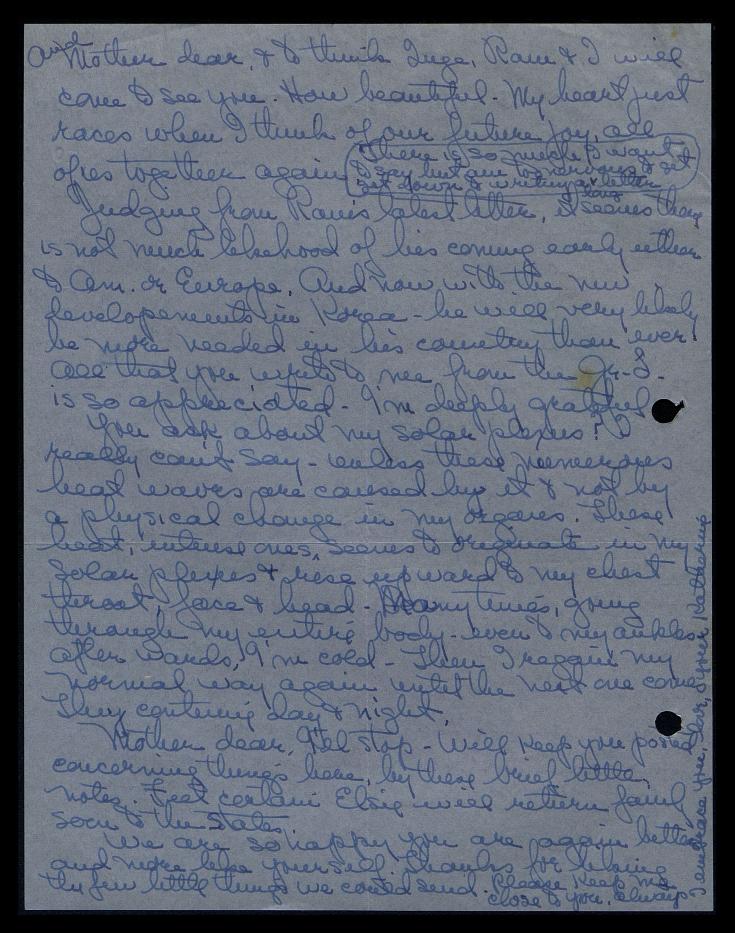 and Mother dear, & to think Inge, Ram & I will
come to see you. How beautiful. My heart just
races when I think of our future joy, all
of us together again
There is so much I want
to say but am too nervous to get
set down to writing a long letter
Judging from Ram's latest letter, it seems there
is not much likehood of his coming early either
to Am. or Europe. And now with the new
developements in Korea - he will very likely
be more needed in his country than ever.
All that you write to me from the
is so appreciated - I'm deeply grateful.
You ask about my solar plexus? I
really can't say - unless these numerous
heat waves are caused by it & not by
a physical change in my organs. These
heat, intense ones, seems to originate in my
solar plexes & rise upward to my chest
throat, face & head - Many times, going
through my entire body - even to my ankles
afterwards, I'm cold - Then I regain my
normal way again until the next one comes
They contuing day & night.
Mother dear, I'll stop - Will keep you posted
concerning things here, by these brief little
notes. Feel certain Elsie will return fairly
soon to the States.
We are so happy you are again better
and more like yourself. Thanks for liking
the few little things we could send. Please keep me
close to you, always
I embrace you, dear, Your Katherine